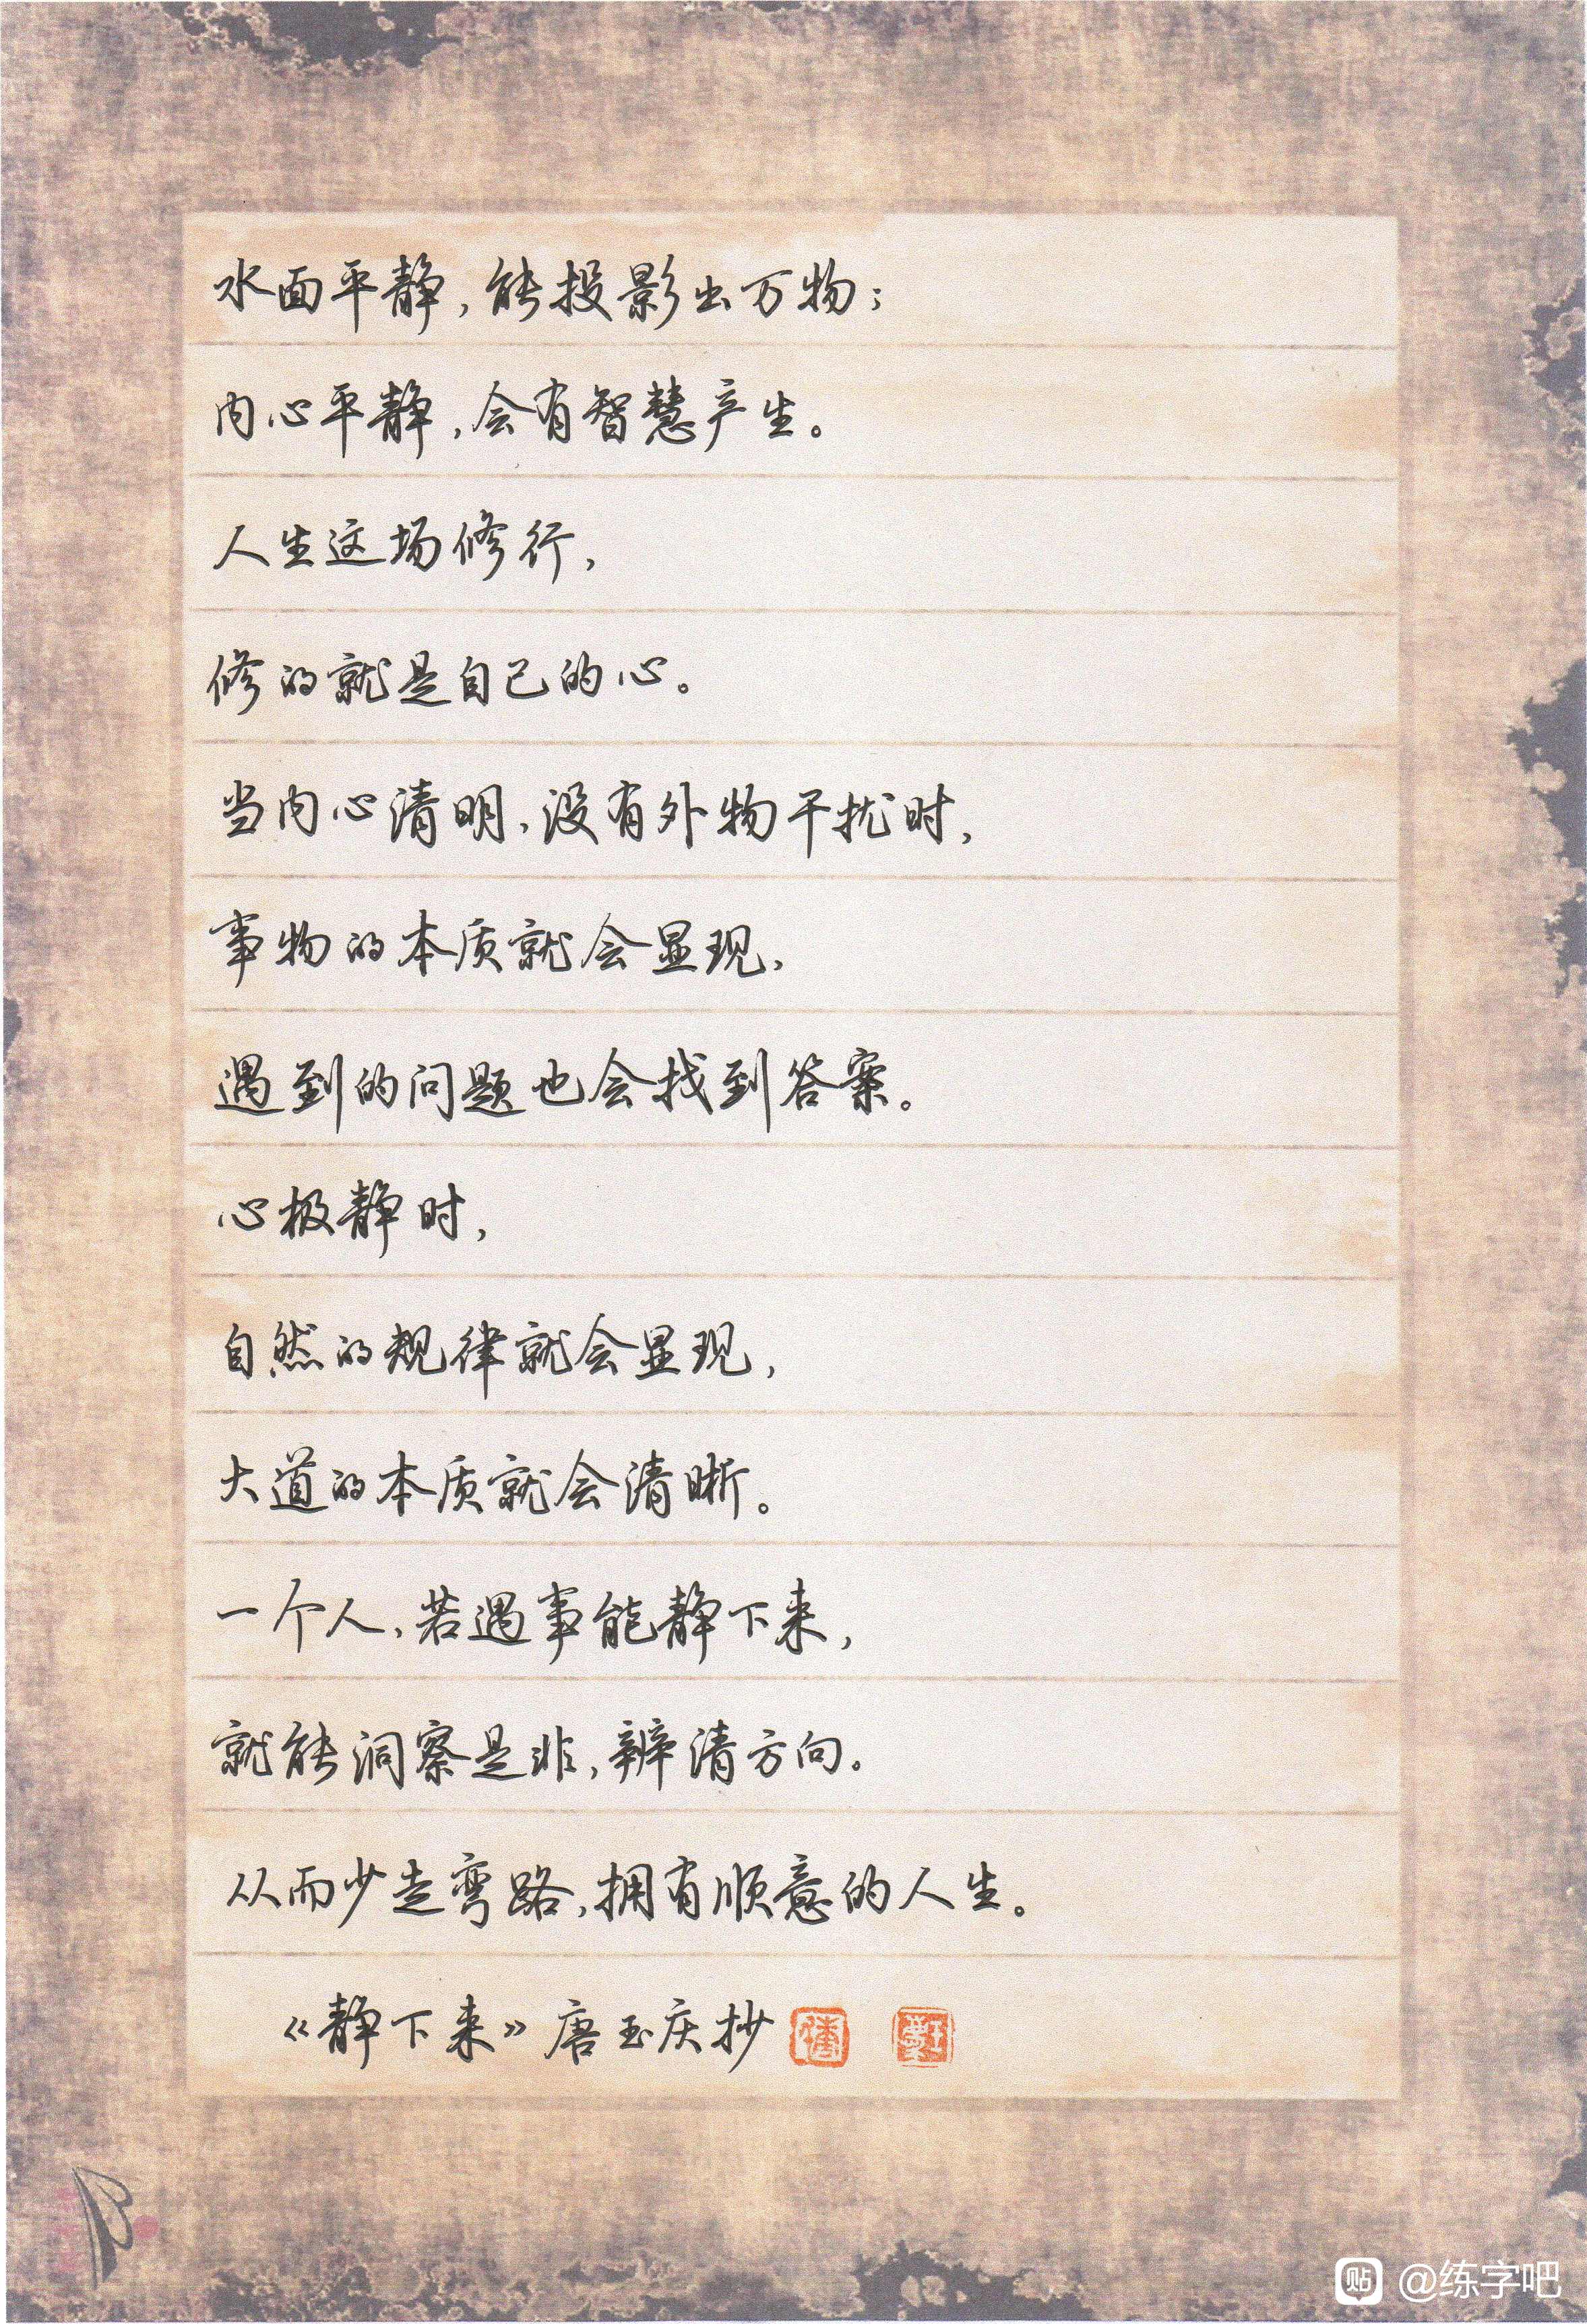 水面平静，能投影出万物；
内心平静，会有智慧产生。
人生这场修行，
修的就是自己的心。
当内心清明、没有外物干扰时，
事物的本质就会显现、
遇到的问题也会找到答案。
心极静时，
自然的规律就会显现，
大道的本质就会清晰。
一个人、若遇事能静下来，
就能洞察是非，辨清方向。
从而少走弯路，拥有顺意的人生。
《静下来》唐玉庆抄
贴 @练字吧